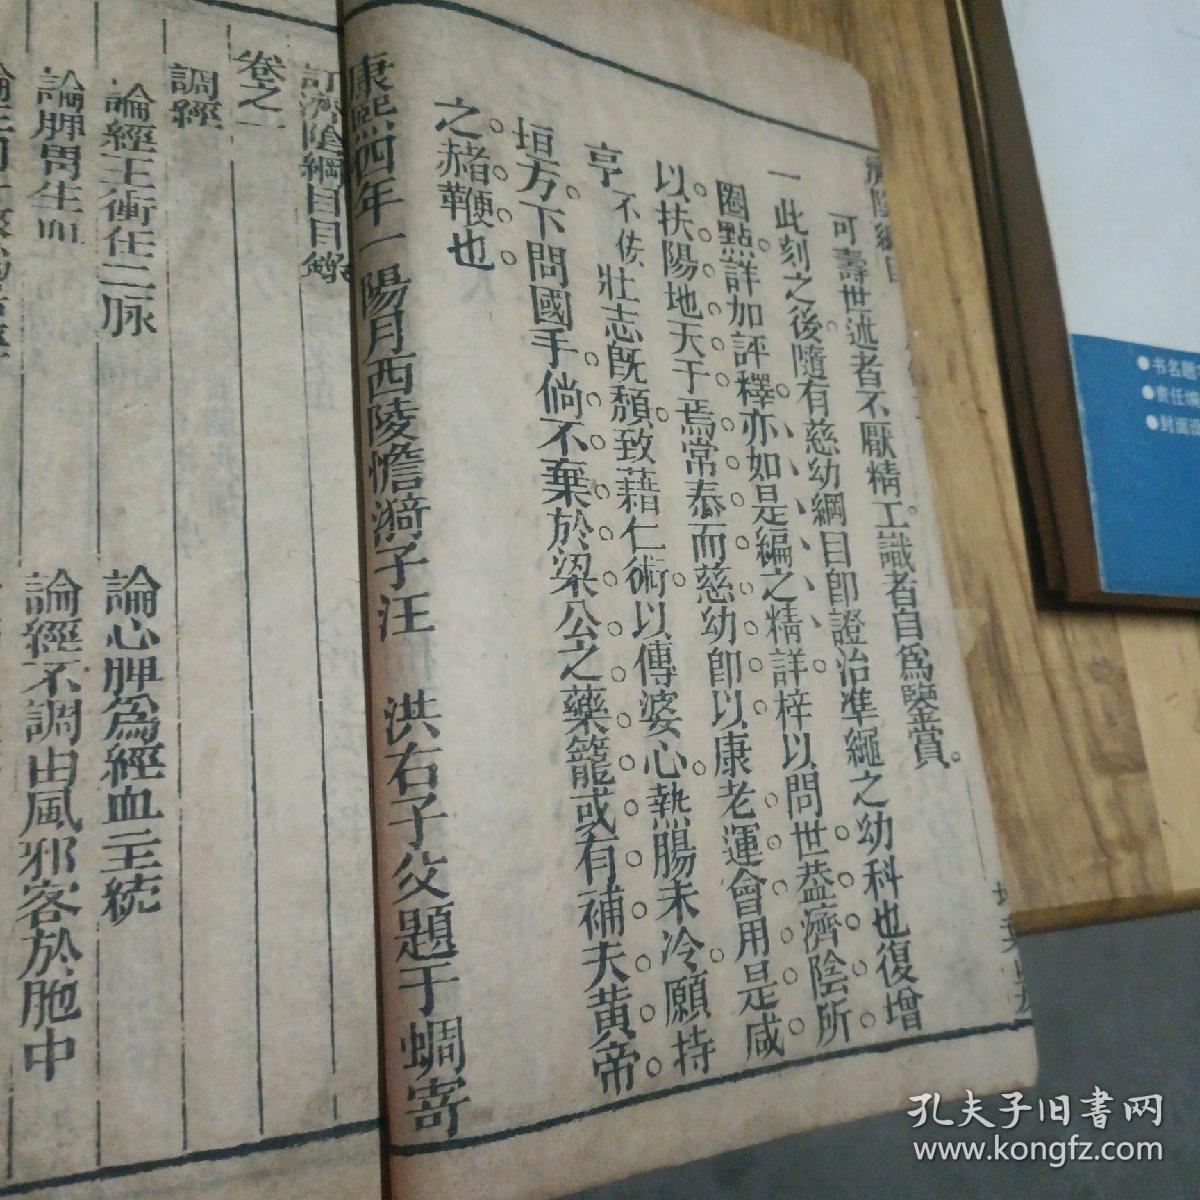 可壽世述者不厭精工識者自爲鑒賞
一此刻之後隨有慈幼綱目卽證治準繩之幼科也復增
圈點詳加評釋亦如是編之精詳梓以問世葢濟陰所
以扶陽地天于焉常泰而慈幼卽以康老運會用是咸
亨不佞壯志旣頹致藉仁術以傳婆心熱腸未冷願持
垣方下問國手倘不棄於梁公之藥籠或有補夫黄帝
之赭鞭也
康熙四年一陽月西陵憺漪子汪 淇右子父題于蜩寄
訂濟陰綱目目錄
卷之一
調經
論經主衝任二脉
論心脾爲經血主統
論脾胃生血
論經不調由風邪客於胞中
●书名题
●责任编
●封面设
孔夫子旧书网
www.kongfz.com